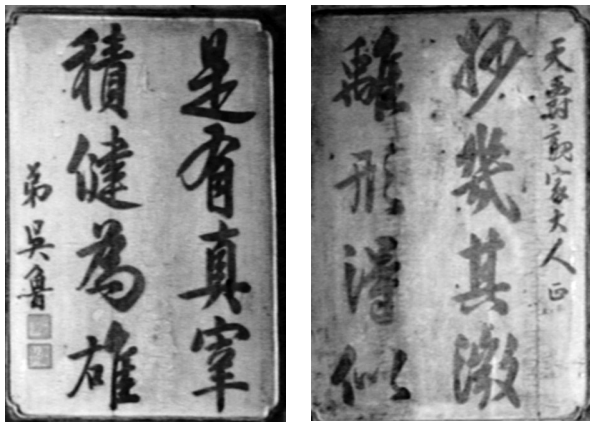 天爵親家大人正
妙幾其微
離形得似
是有真宰
積健為雄
弟吳魯